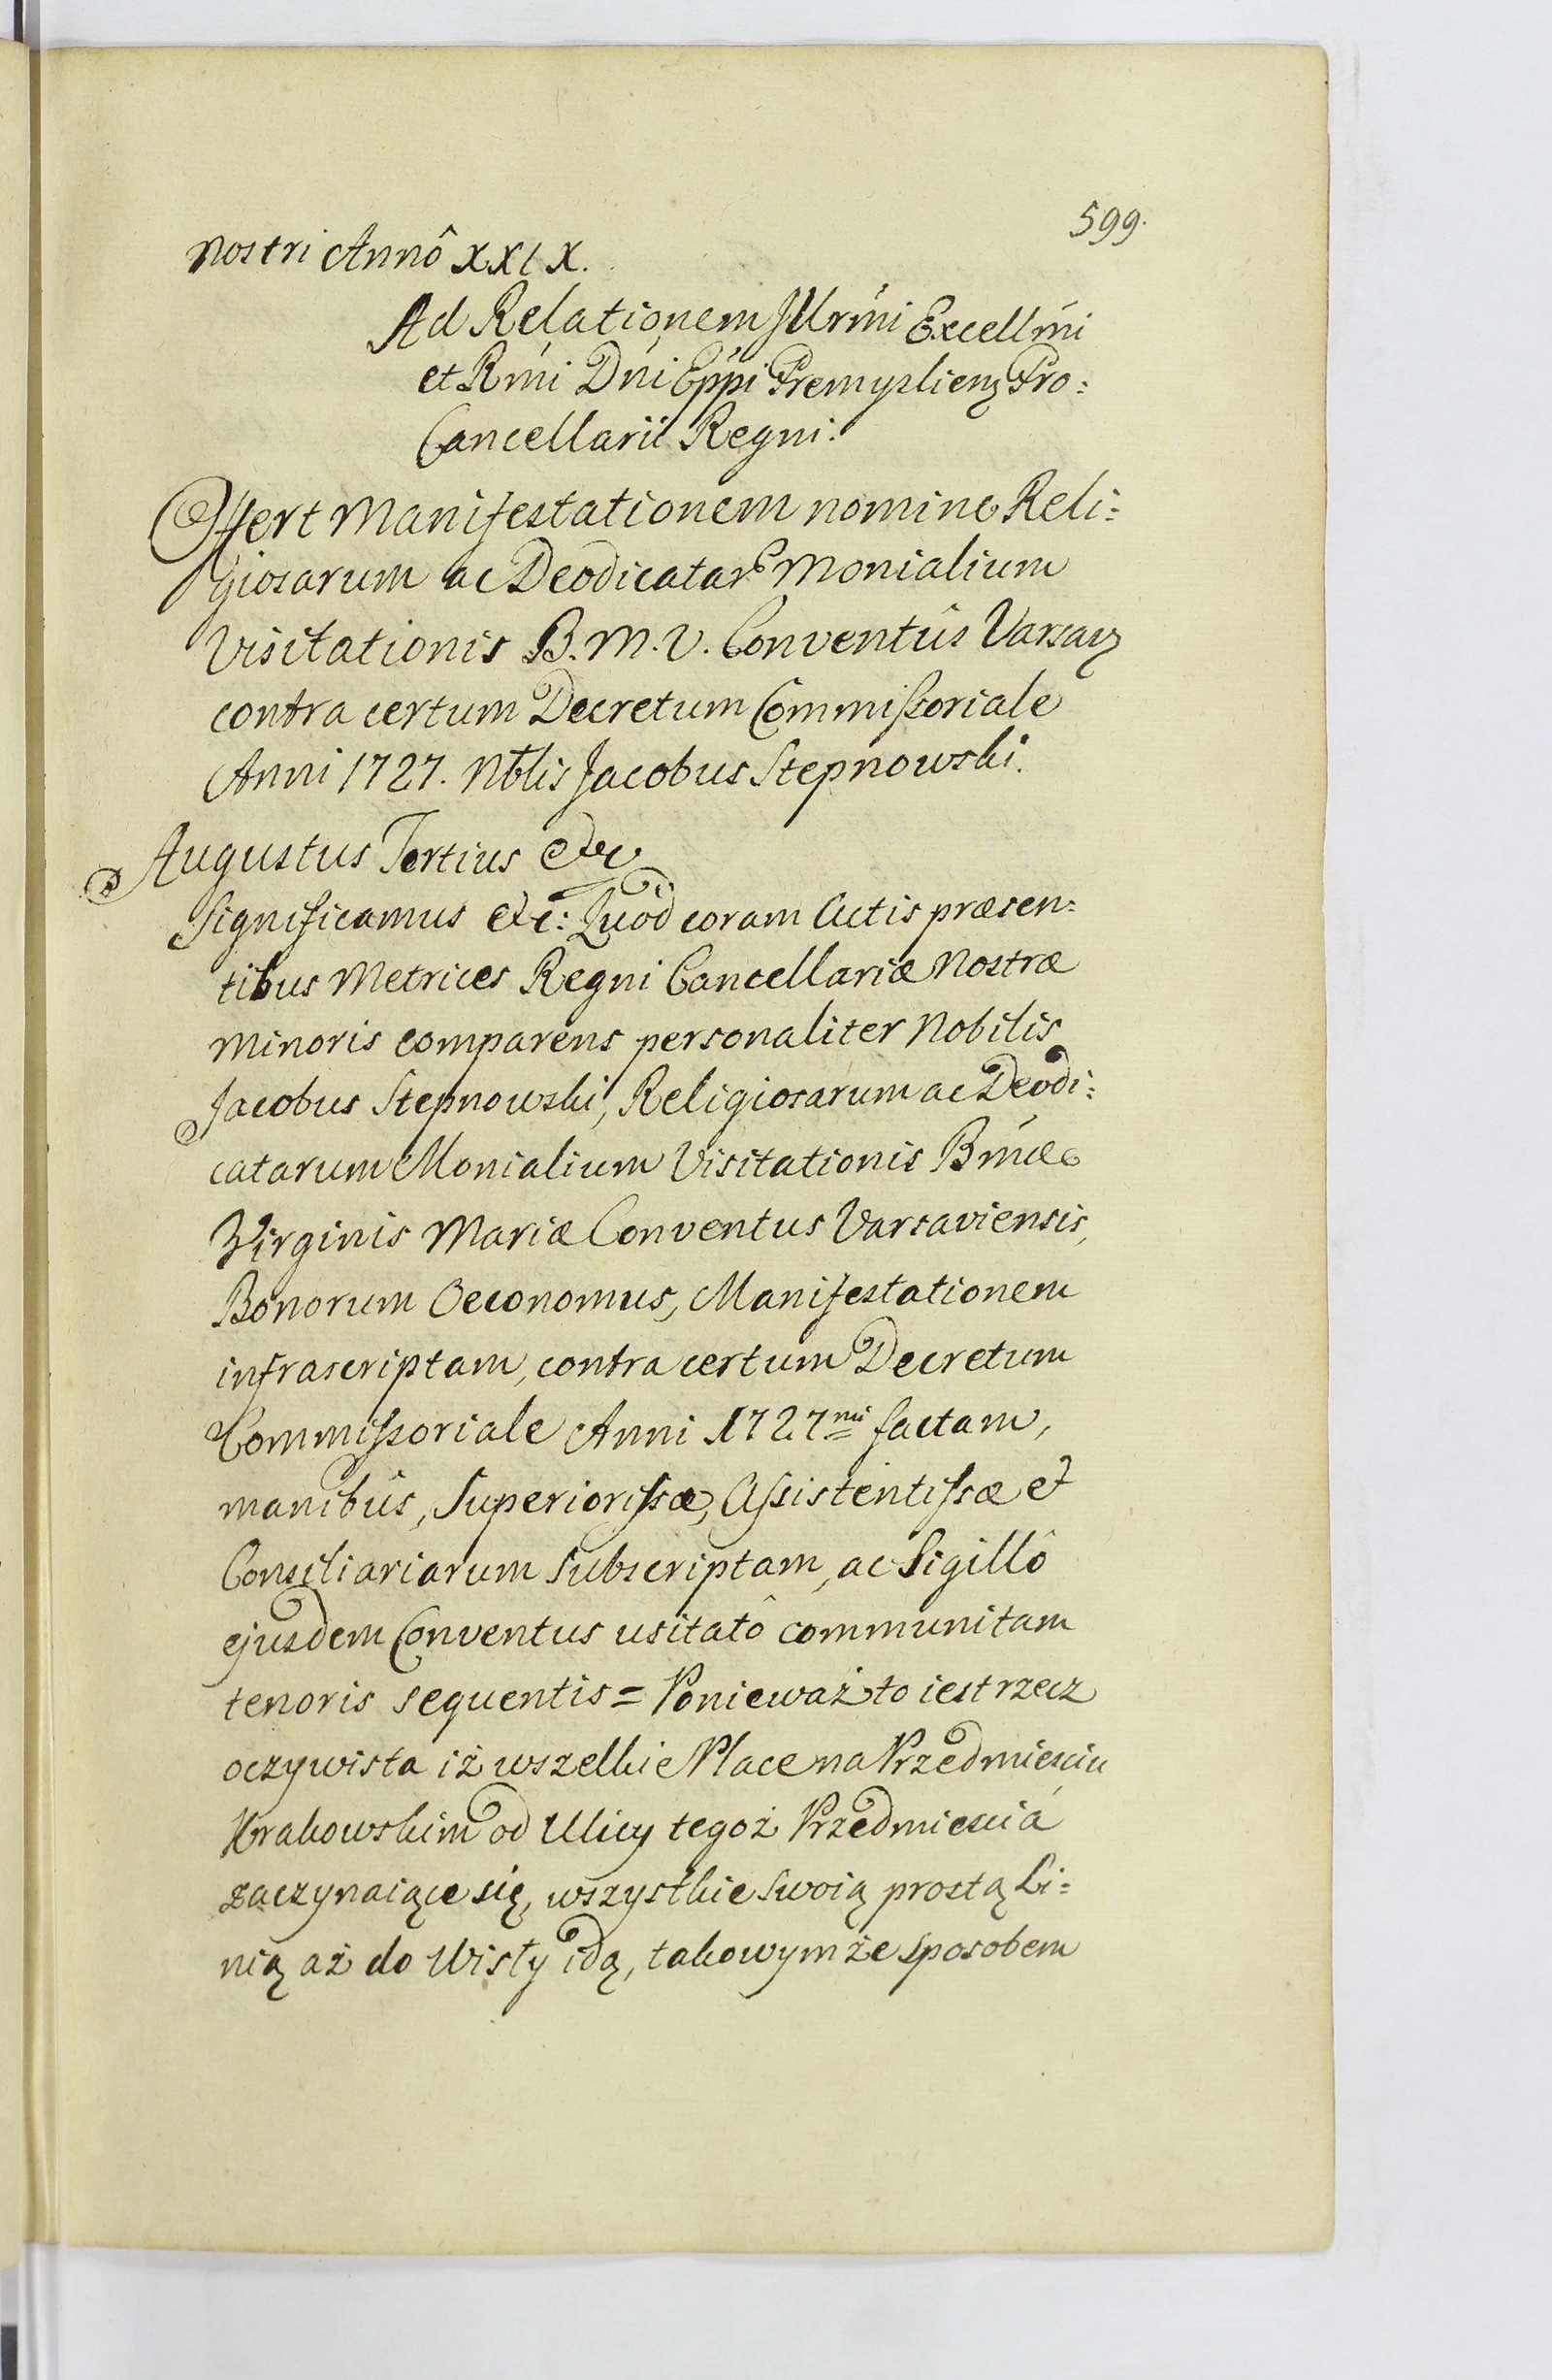 599.
nostri Annô XXIX.
Ad Relationem Jllrm̃i Excellm̃i
et Rm̃i Dn̄i Eppi Premyslienꝫ Pro=
Cancellarii Regni.
Offert Manifestationem nomine Reli=
giosarum ac Deodicatar Monialium
Visitationis B. M. V. Conventûs Varsavꝫ
contra certum Decretum Commißoriale
Anni 1727. Nblis Jacobus Stepnowski.
Augustus Tertius etc
Significamus etc: Quôd coram Actis præsen=
tibus Metrices Regni Cancellariæ Nostræ
Minoris comparens personaliter Nobilis
Jacobus Stepnowski, Religiosarum ac Deodi=
catarum Monialium Visitationis Bm̃æ
Virginis Mariæ Conventus Varsaviensis,
Bonorum Oeconomus, Manifestationem
infrascriptam, contra certum Decretum
Commißoriale Anni 1727mi factam,
manibûs, Superiorißæ, Aßistentißæ et
Consiliariarum subscriptam, ac Sigillô
ejusdem Conventus usitatô communitam
tenoris sequentis = Ponieważ to iest rzecz
oczywista iż wszelkie Place na Przedmiesciu
Krakowskim od Ulicy tegoż Przedmiescia
zaczynaiące się, wszystkie swoią prostą Li=
nią aż do Wisły idą, takowym że sposobem